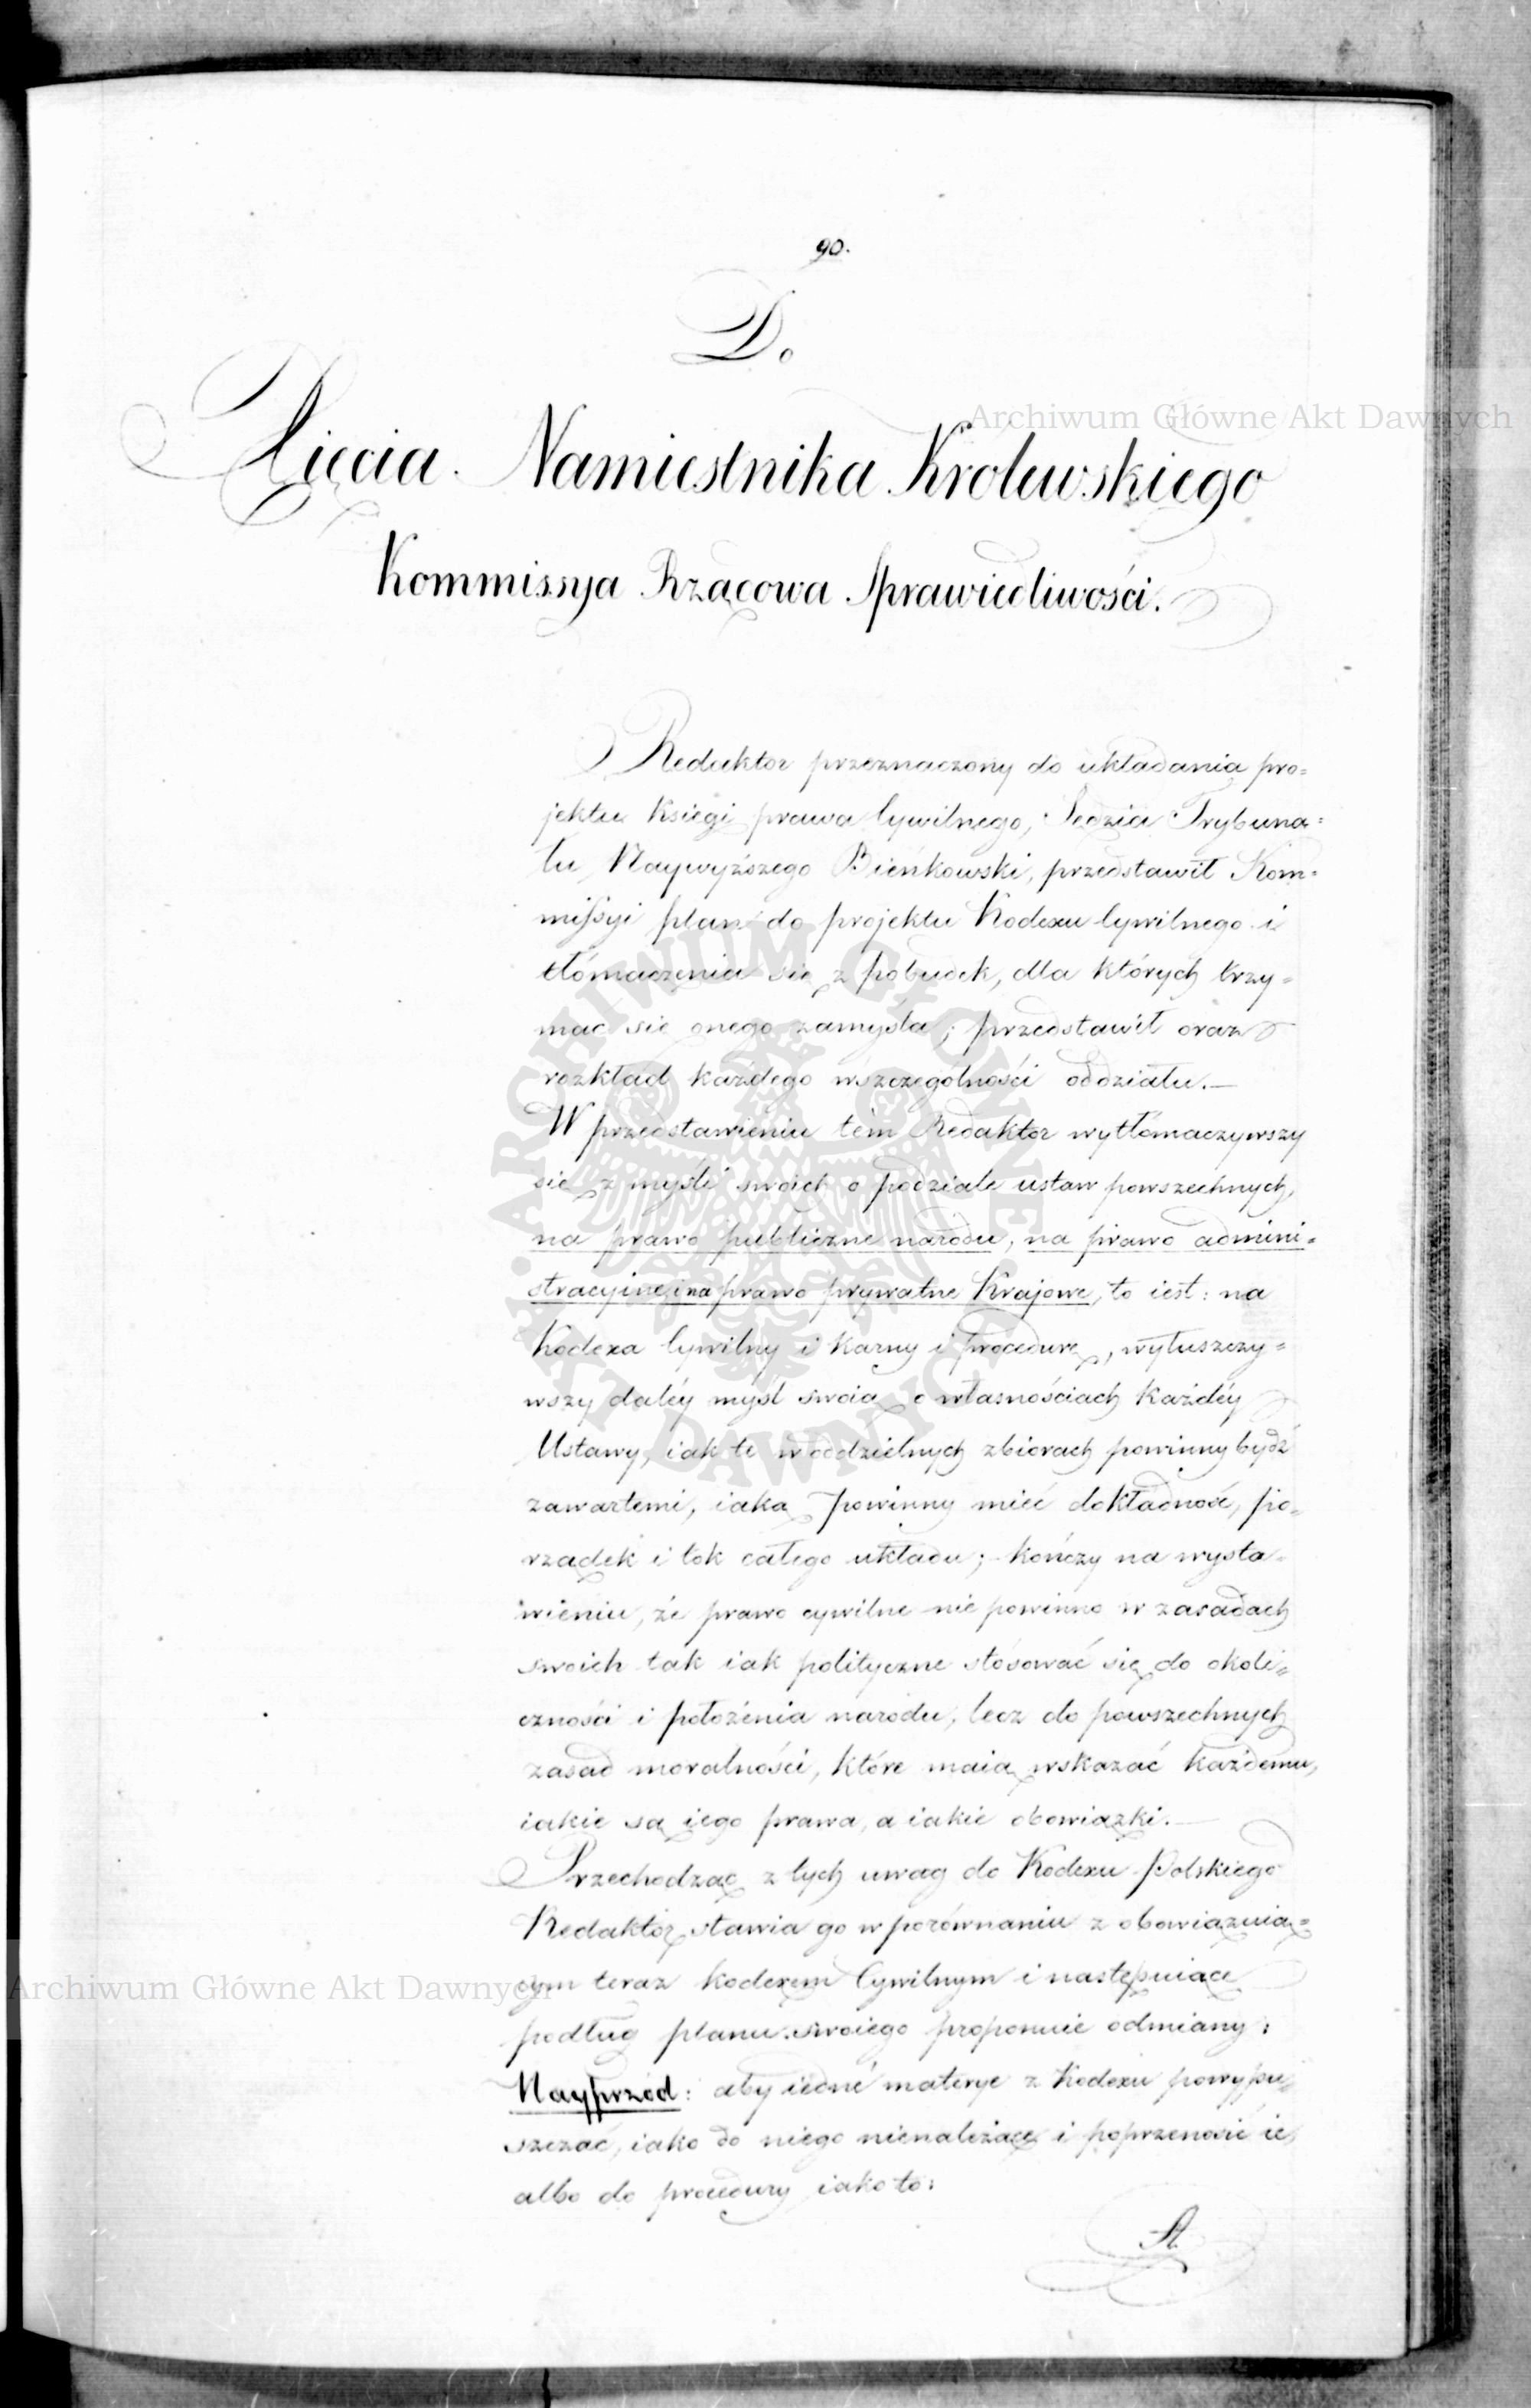 90.
Do
Xięcia Namiestnika Królewskiego
Kommissya Rządowa Sprawiedliwości.
Redaktor przeznaczony do układania pro=
jektu Księgi prawa Cywilnego, Sędzia Trybuna=
łu Naywyższego Bieńkowski, przedstawił Kom=
missyi plan do projektu Kodexu Cywilnego i
tłómaczenia się z pobudek, dla których trzy=
mać się onego zamyśla; przedstawił oraz
rozkład każdego wszczególności oddziału.—
W przedstawieniu tem Redaktor wytłómaczywszy
się z myśli swoich o podziale ustaw powszechnych,
na prawo publiczne narodu, na prawo admini=
stracyine i na prawo prywatne Krajowe, to iest: na
Kodexa Cywilny i Karny i procedurę, wyłuszczy=
wszy daléy myśl swoią o własnościach każdéy
Ustawy, iak te w oddzielnych zbiorach powinny bydź
zawartemi, iaką powinny mieć dokładność, po=
rządek i tok całego układu; kończy na wysta=
wieniu, że prawo cywilne nie powinno w zasadach
swoich tak iak polityczne stósować się do okoli=
czności i położenia narodu, lecz do powszechnych
zasad moralności, które maią wskazać każdemu,
iakie są iego prawa, a iakie obowiązki.—
Przechodząc z tych uwag do Kodexu Polskiego
Redaktor stawia go w porównaniu z obowiązuią=
cym teraz kodexem Cywilnym i następuiące
podług planu swoiego proponuie odmiany:
Nayprzód: aby iedne materye z Kodexu powypu=
szczać, iako do niego nienależące i poprzenosić ie
albo do procedury iako to:
A
Archiwum Główne Akt Dawnych
Archiwum Główne Akt Dawnych
ARCHIWUM GŁÓWNE
AKT DAWNYCH